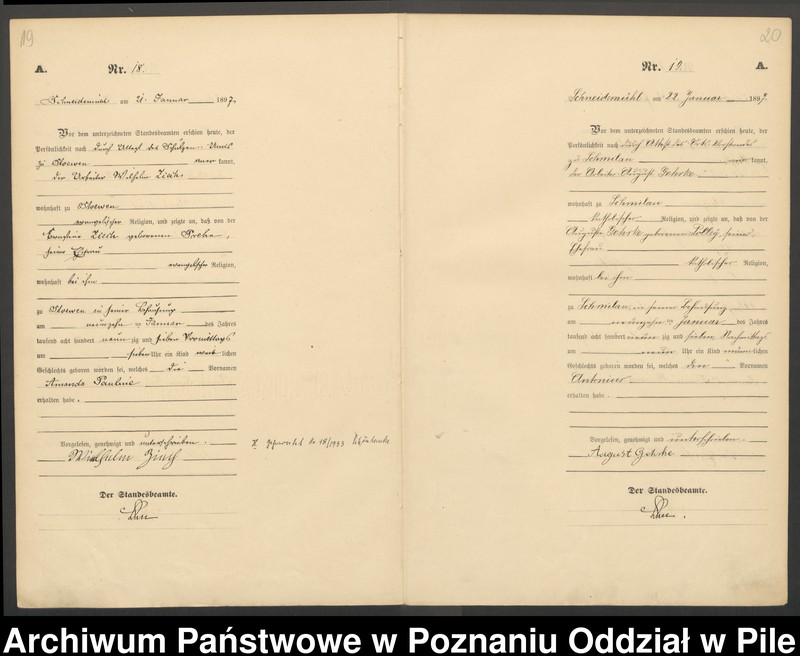 19
A.
Nr. 18.
Schneidemühl am 21. Januar 1897.
Vor dem unterzeichneten Standesbeamten erschien heute, der
Persönlichkeit nach durch Attest des Schulzen-Amts
zu Stoewen kannt,
der Arbeiter Wilhelm
wohnhaft zu Stoewen
evangelischer Religion, und zeigte an, daß von der
Ernestine geborenen
seiner Ehefrau
evangelischer Religion,
wohnhaft bei ihm
zu Stoewen in seiner Behausung
am neunzehn ten Januar des Jahres
tausend acht hundert neun zig und sieben Vormittags
um sieben Uhr ein Kind weib lichen
Geschlechts geboren worden sei, welches die Vornamen
Amanda Pauline
erhalten habe.
Vorgelesen, genehmigt und unterschrieben.
Wilhelm
Der Standesbeamte.
18/1933
20
Nr. 19.
A.
Schneidemühl am 22. Januar 1897.
Vor dem unterzeichneten Standesbeamten erschien heute, der
Persönlichkeit nach durch Attest des
zu Schmilau kannt,
der Arbeiter August Gehrke
wohnhaft zu Schmilau
katholischer Religion, und zeigte an, daß von der
Auguste Gehrke geborenen seiner
Ehefrau
katholischer Religion,
wohnhaft bei ihm
zu Schmilau in seiner Behausung
am neunzehn ten Januar des Jahres
tausend acht hundert neun zig und sieben Nachmittags
um neun Uhr ein Kind männ lichen
Geschlechts geboren worden sei, welches den Vornamen
erhalten habe.
Vorgelesen, genehmigt und unterschrieben.
August Gehrke
Der Standesbeamte.
Archiwum Państwowe w Poznaniu Oddział w Pile